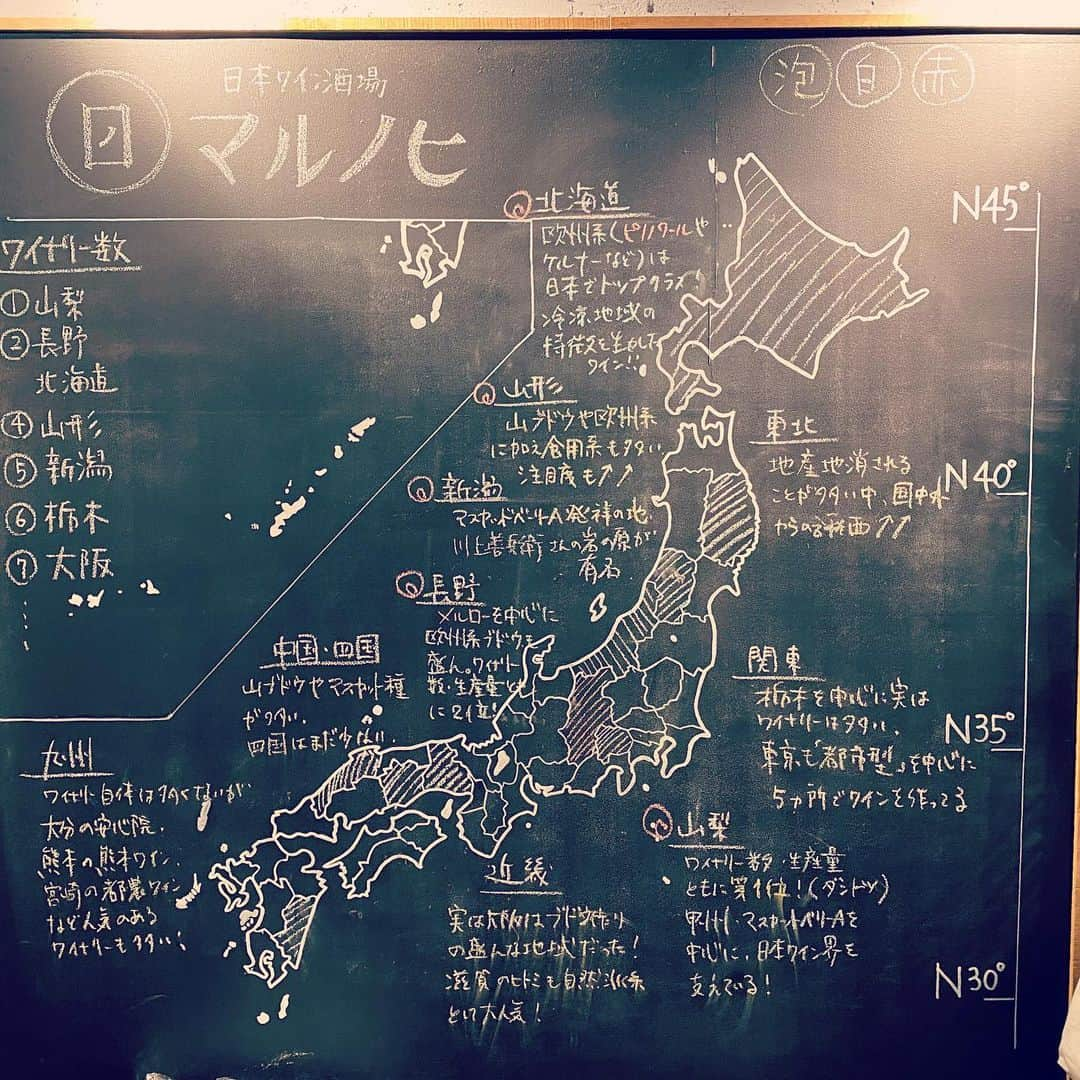 日本ワイン酒場
マルノヒ
泡 白 赤
ワイナリー数
①山梨
②長野
北海道
④山形
⑤新潟
⑥栃木
⑦大阪
北海道
欧州系(ピノノワールや
ケルナーなど)は
日本でトップクラス!
冷涼地域の
特徴を生かした
ワイン!!
山形
山ブドウや欧州系
に加え食用系も多い
注目度も↑↑
新潟
マスカットベーリーA発祥の地
川上善兵衛さんの岩の原が
有名
長野
メルローを中心に
欧州系ブドウも
盛ん。ワイナリー
数・生産量とも
に2位!
東北
地産地消される
ことが多い中、国内外
からの
↑↑
関東
栃木を中心に実は
ワイナリーは多い。
東京も「都市型」を中心に
5ヵ所でワインを作ってる
山梨
ワイナリー数・生産量
ともに第1位!(ダントツ)
甲州・マスカットベリーAを
中心に、日本ワイン界を
支えている!
中国・四国
山ブドウやマスカット種
が多い。
四国はまだ少ない。
九州
ワイナリー自体は多くないが
大分の安心院、
熊本の熊本ワイン、
宮崎の都農ワイン
など人気のある
ワイナリーも多い!
近畿
実は大阪はブドウ作り
の盛んな地域だった!
滋賀のヒトミも自然派系
として大人気!
N45°
N40°
N35°
N30°